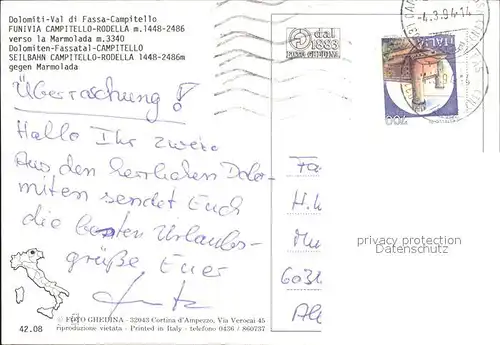 Dolomiti-Val di Fassa-Campitello
FUNIVIA CAMPITELLO-RODELLA m.1448-2486
verso la Marmolada m.3340
Dolomiten-Fassatal-CAMPITELLO
SEILBAHN CAMPITELLO-RODELLA 1448-2486m
gegen Marmolada
dal
1883
FOTO GHEDINA
-4.3.94-14
ITALIA
700
Überraschung!
Hallo Ihr zwei
Aus den herrlichen Dolo-
miten sendet Euch
die besten Urlaubs-
grüße Euer
Fa
H.
Mu
6031
privacy protection
watermark
42.08
© FOTO GHEDINA - 32043 Cortina d'Ampezzo, Via Verocai 45
riproduzione vietata - Printed in Italy - telefono 0436 / 860737